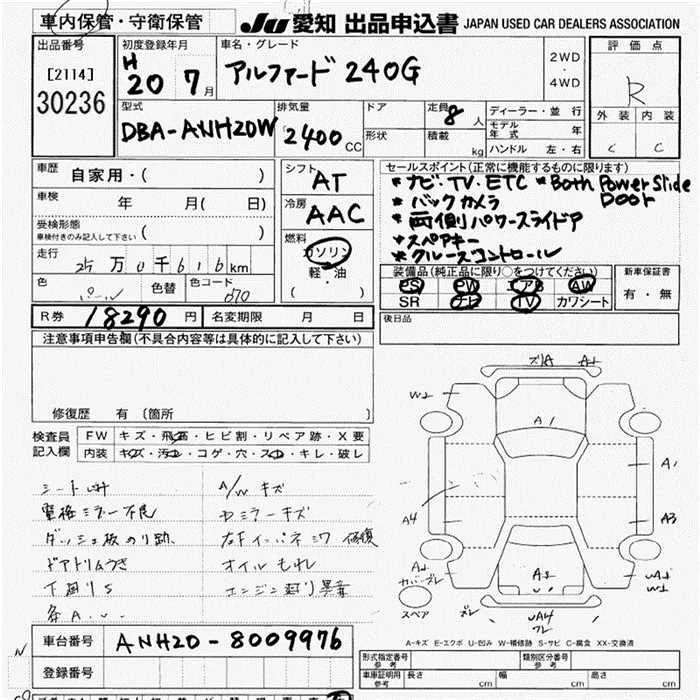 車内保管・守衛保管
JU 愛知 出品申込書 JAPAN USED CAR DEALERS ASSOCIATION
出品番号 [2114] 30236
初度登録年月 H 20 7月
車名・グレード アルファード 240G
2WD・4WD
評価点 R
外装 内装
C C
型式 DBA-ANH20W
排気量 2400 CC
ドア 形状
定員 8 人
積載 kg
ディーラー・並行
モデル年式 年
ハンドル 左・右
車歴 自家用・( )
車検 年 月( 日)
受検形態 車検付きのみ記入して下さい ( )
走行 25万0千616km
色 パール 色替 色コード 070
シフト AT
冷房 AAC
燃料 ガソリン 軽・油 ( )
セールスポイント(正常に機能するものに限ります)
* ナビ・TV・ETC * Both Power Slide Door
* バックカメラ
* 両側パワースライドア
* スペアキー
* クルーズコントロール
装備品(純正品に限り○をつけてください)
PS PW エアB AW
SR ナビ TV カワシート
新車保証書 有・無
R券 18290 円 名変期限 月 日
後日品
注意事項申告欄(不具合内容等は具体的に記入して下さい)
修復歴 有 〔箇所
検査員記入欄
FW キズ・飛石・ヒビ割・リペア跡・X要
内装 キズ・汚れ・コゲ・穴・スレ・キレ・破レ
電格ミラー不良
ドアトリムうき
下廻りS
A/W キズ
オイルもれ
エンジン廻り異音
ズレA A1
W2
A1
A1
A4
A3
A2
スペア
UA4
A-キズ E-エクボ U-凹み W-補修跡 S-サビ C-腐食 XX-交換済
車台番号 ANH20-8009976
登録番号
形式指定番号 参考
類別区分番号 参考
車庫証明用 参考 長さ cm 幅 cm 高さ cm